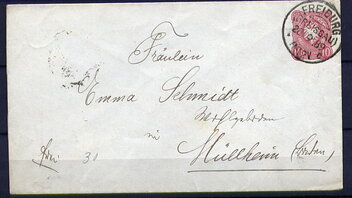 FREIBURG
Fräulein
Emma Schmidt
Wohlgeboren
in
Müllheim (Baden)
frei 31